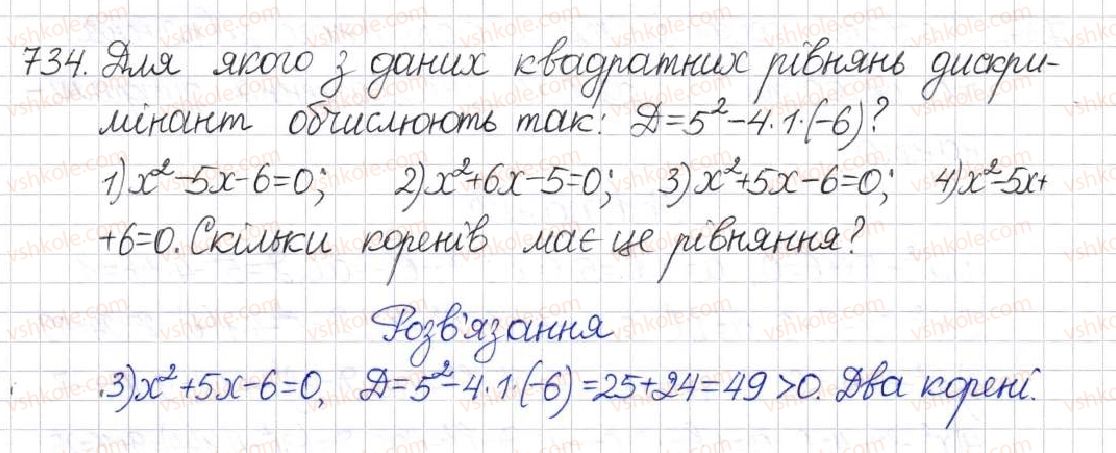 734. Для якого з даних квадратних рівнянь дискри-
мінант обчислюють так: Д=5²-4·1·(-6)?
1) x²-5x-6=0; 2) x²+6x-5=0; 3) x²+5x-6=0; 4) x²-5x+
+6=0. Скільки коренів має це рівняння?
Розв'язання
3) x²+5x-6=0, Д=5²-4·1·(-6)=25+24=49>0. Два корені.